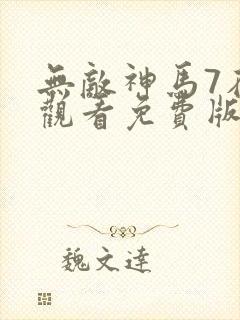 無敵神馬7
觀看免費版
魏文達